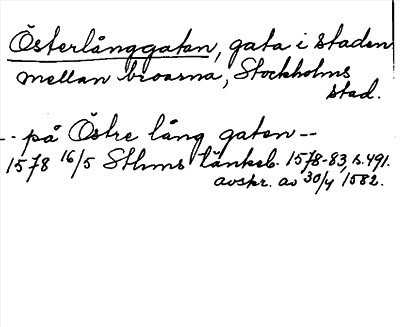 Österlånggatan, gata i staden
mellan broarna, Stockholms
stad.
-- på Östre lång gaten --
1578 16/5 Sthms tänkeb. 1578-83, s. 491.
avskr. av 30/4 1582.